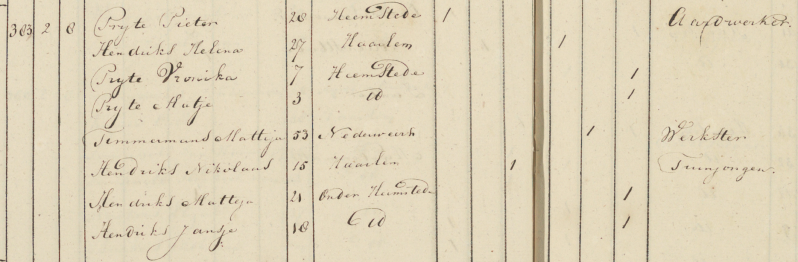 303 2 8 Pryte Pieter 28 Heemstede 1 Aardwerker.
Hendriks Helena 27 Haarlem 1
Pryte Vronika 7 Heemstede 1
Pryte Matje 3 id 1
Timmermans Mattija 53 Nederweert 1 Werkster
Hendriks Nikolaas 15 Haarlem 1 Tuinjongen.
Hendriks Mattija 21 Onder Heemstede 1
Hendriks Jansje 18 id 1